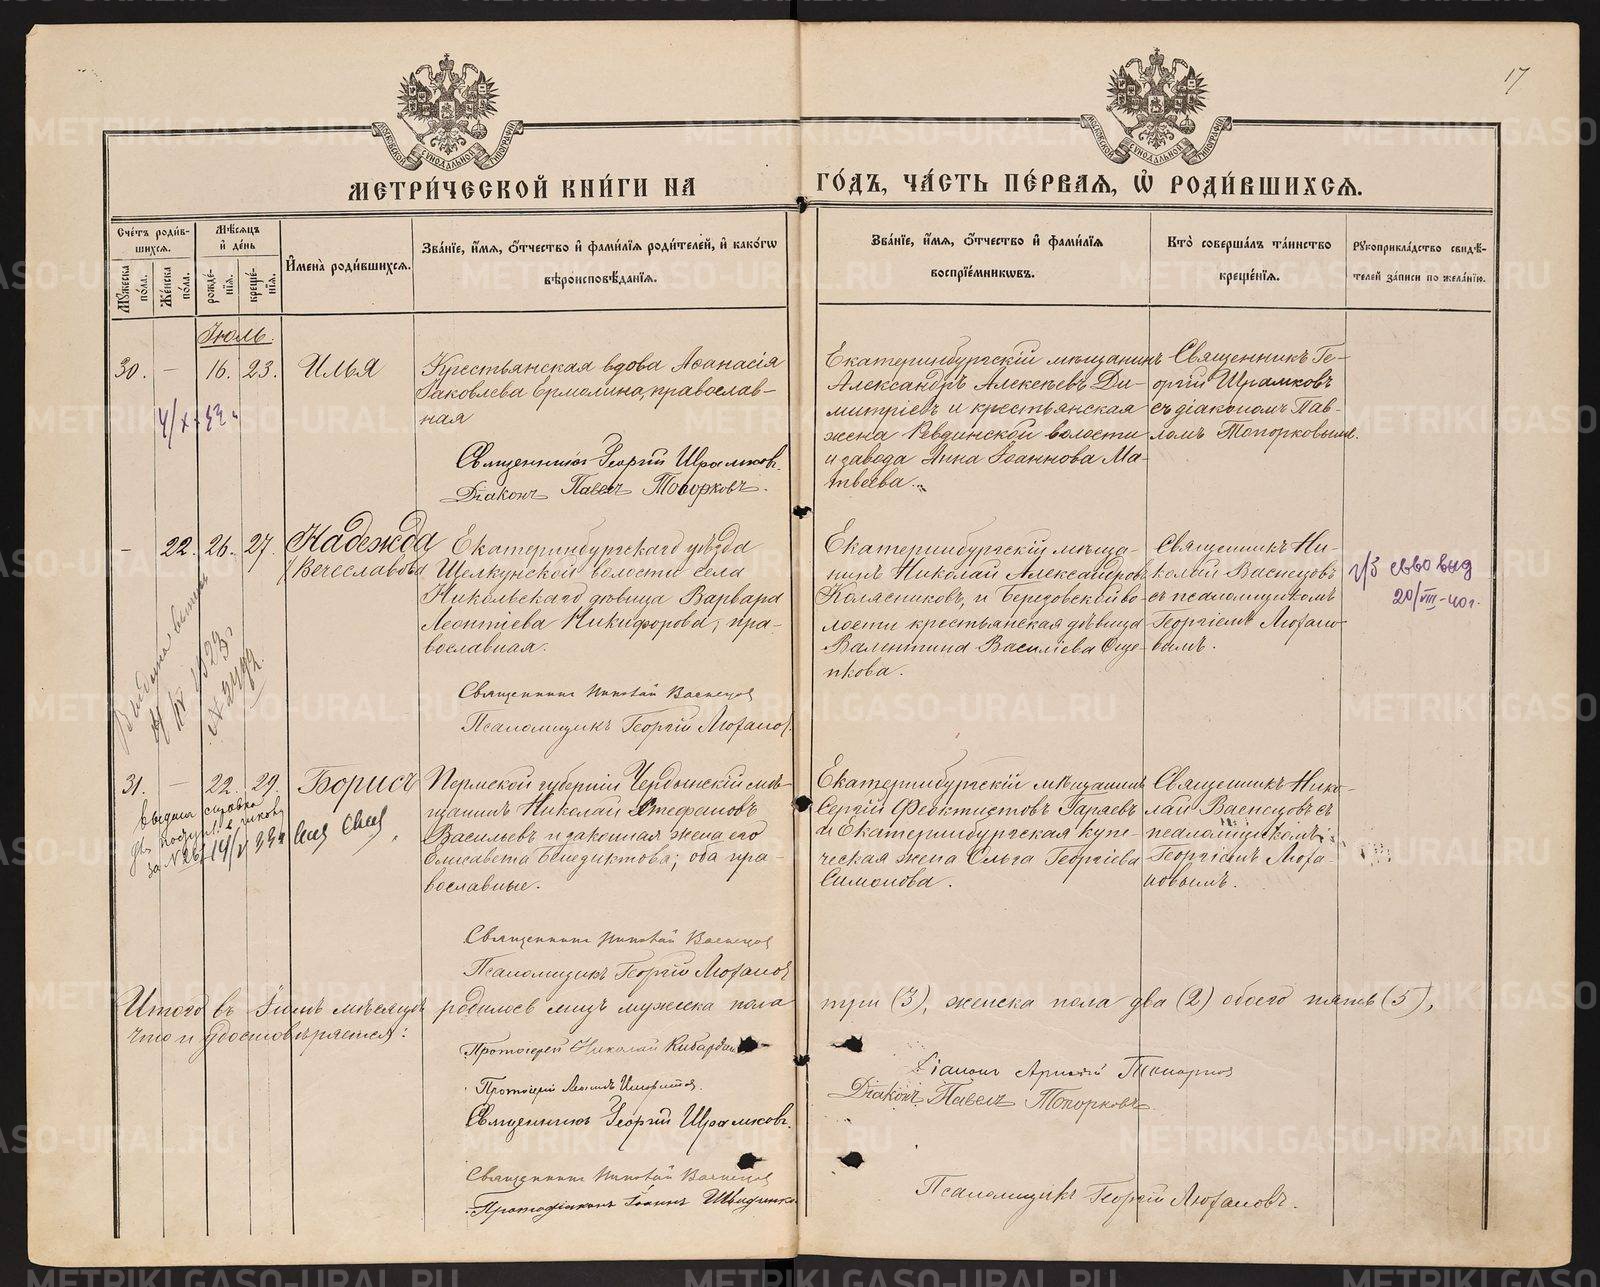 17
МОСКОВСКОЙ СѴНОДАЛЬНОЙ ТИПОГРАФІИ
МОСКОВСКОЙ СѴНОДАЛЬНОЙ ТИПОГРАФІИ
МЕТРИ́ЧЕСКОЙ КНИ́ГИ НА ГО́ДЪ, ЧА́СТЬ ПЕ́РВАѦ, Ѡ РОДИ́ВШИХСѦ.
Сче́тъ роди́в-
шихсѧ.
Мꙋжеска по́ла.
Же́нска по́ла.
Мѣ́сѧцъ
и҆ де́нь
рожде́-
нїѧ.
креще́-
нїѧ.
И҆мена̀ роди́вшихсѧ.
Зва́нїе, и҆́мѧ, ѻ҆́тчество и҆ фами́лїѧ роди́телей, и҆ како́гѡ
вѣроисповѣ́данїѧ.
Зва́нїе, и҆́мѧ, ѻ҆́тчество и҆ фами́лїѧ
воспрїе́мникѡвъ.
Кто̀ соверша́лъ та́инство
креще́нїѧ.
Рꙋкоприкла́дство свидѣ́-
телей за́писи по жела́нїю.
Іюль.
30. — 16. 23. Илья
Крестьянская вдова Аѳанасія
Іаковлева Ермолина, православ-
ная
Священникъ Георгій Шрамковъ.
Діаконъ Павелъ Топорковъ.
Екатеринбургскій мѣщанинъ
Александръ Алексѣевъ Ди-
митріевъ и крестьянская
жена Ревдинской волости
и завода Анна Іоаннова Ма-
твѣева.
Священникъ Ге-
оргій Шрамковъ
съ діакономъ Пав-
ломъ Топорковымъ.
— 22. 26. 27. Надежда
Вечеславова
Екатеринбургскаго уѣзда
Щелкунской волости села
Никольскаго дѣвица Варвара
Леонтіева Никифорова, пра-
вославная.
Священникъ Николай Васнецовъ
Псаломщикъ Георгій Люхановъ.
Екатеринбургскій мѣща-
нинъ Николай Александровъ
Колясниковъ, и Березовской во-
лости крестьянская дѣвица
Валентина Василіева Още-
пкова.
Священникъ Ни-
колай Васнецовъ
съ псаломщикомъ
Георгіемъ Люхано-
вымъ.
выд
20/VIII-40г.
Выдана
IV 1923 г.
31. — 22. 29. Борисъ
Пермской губерніи Чердынскій мѣ-
щанинъ Николай Стефановъ
Васильевъ и законная жена его
Елисавета Бенедиктова, оба пра-
вославные.
Священникъ Николай Васнецовъ
Псаломщикъ Георгій Люхановъ
Екатеринбургскій мѣщанинъ
Сергій Феоктистовъ Гараевъ
и Екатеринбургская купе-
ческая жена Ольга Георгіева
Симонова.
Священникъ Нико-
лай Васнецовъ съ
псаломщикомъ
Георгіемъ Люха-
новымъ.
выдана справка
Итого въ Іюлѣ мѣсяцѣ родилось лицъ мужеска пола три (3), женска пола два (2) обоего пять (5),
что и удостовѣряется:
Протоіерей Николай
Протоіерей
Священникъ Георгій Шрамковъ.
Священникъ Николай Васнецовъ
Протодіаконъ Іоаннъ
Діаконъ Топорковъ
Діаконъ Павелъ Топорковъ.
Псаломщикъ Георгій Люхановъ.
METRIKI.GASO-URAL.RU